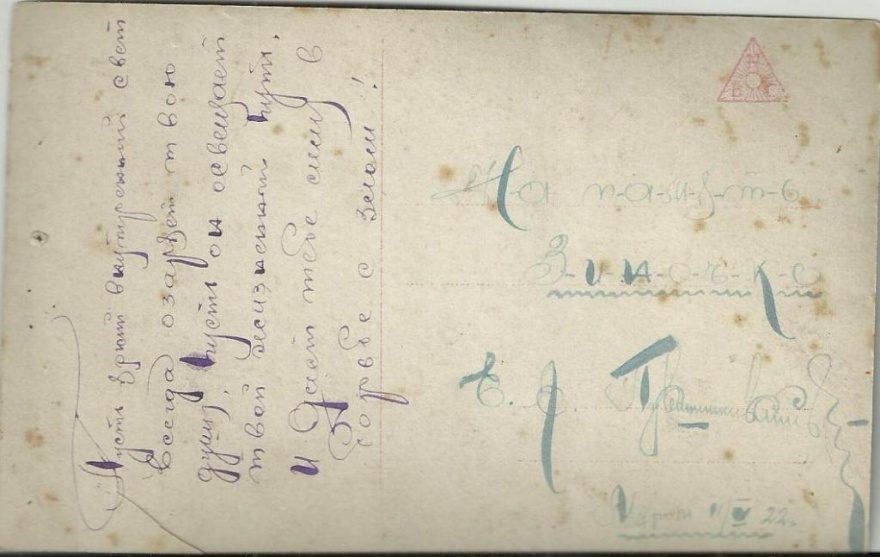 Пусть яркий внутренний свет
всегда озаряет твою
душу, пусть он освещает
твой жизненный путь.
И дает тебе силу в
борьбе с злом!
На память
Зиночке
Е.
22.